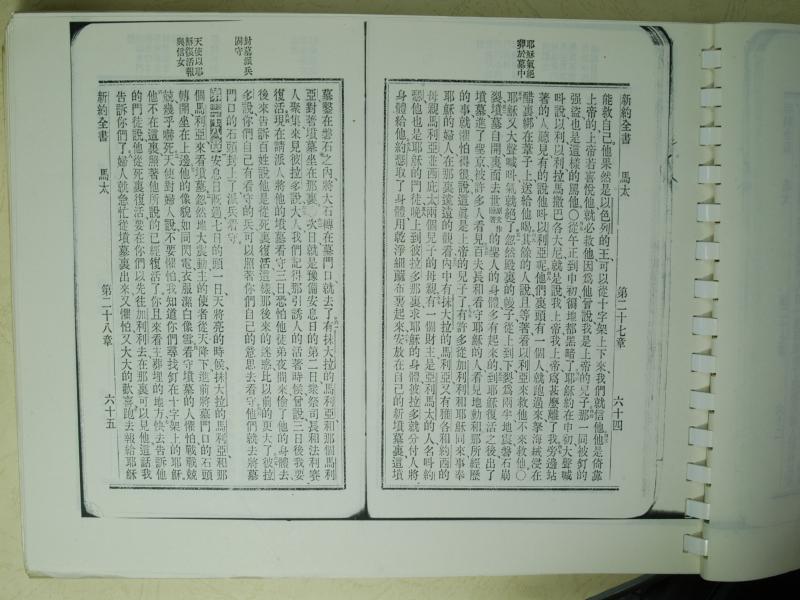 新約全書
馬太
第二十七章
六十四
耶穌氣絕
葬於墓中
能救自己他果然是以色列的王可以從十字架上下來我們就信他他是倚靠
上帝的上帝若喜悅他就必救他因為他曾說我是上帝的兒子那一同被釘的
强盜也是這樣的罵他〇從午正到申初徧地都黑暗了耶穌約在申初大聲喊
叫說以利以利拉馬撒巴各大尼就是說我上帝我上帝為甚麽離了我旁邊站
著的人聽見有的說他呌以利亞呢他們裏頭有一個人就跑過來拏海絨浸在
醋裏綁在葦子上送給他喝其餘的人說且等著看以利亞來救他不來救他〇
耶穌又大聲喊叫氣就絕了忽然殿裏的幔子從上到下裂為兩半地震磐石崩
裂墳墓自己開裏面去世的聖人的身體多有起來的到耶穌復活之後出了
墳墓進了聖京被許多人看見百夫長和看守耶穌的人看見地動和那所經歷
的事就懼怕得很說這眞是上帝的兒子了有許多從加利利和耶穌同來事奉
耶穌的婦人在那裏遠遠的觀看內中有抹大拉的馬利亞又有雅各和約西的
母親馬利亞並西庇太兩個兒子的母親有一個財主是亞利馬太的人名呌約
瑟他也是耶穌的門徒晚上到彼拉多那裏求耶穌的身體彼拉多就分付人將
身體給他約瑟取了身體用乾淨細蔴布裹起來安放在自己的新墳墓裏這墳
封墓派兵
固守
天使以耶
穌復活報
與信女
墓鑿在磐石之內將大石轉在墓門口就去了有抹大拉的馬利亞和那個馬利
亞對著墳墓坐在那裏〇次日就是豫備安息日的第二日衆祭司長和法利賽
人聚集來見彼拉多說大人我們記得那引誘人的活著時候曾說三日後我要
復活現在請派人將他的墳墓看守三日恐怕他徒弟夜間來偷了他的身體去
後來告訴百姓說他是從死裏復活這樣那後來的迷惑比以前的更大了彼拉
多說你們自己有看守的兵可以照著你們自己的意思去看守他們就去將墓
門口的石頭封上了派兵看守
第二十八章安息日旣過七日的頭一日天將亮的時候抹大拉的馬利亞和那
個馬利亞來看墳墓忽然地大震動主的使者從天降下進前將墓門口的石頭
轉開坐在上邊他的像貌如同閃電衣服潔白像雪看守墳墓的人懼怕戰戰兢
兢幾乎嚇死天使對婦人說不要懼怕我知道你們尋找釘在十字架上的耶穌
他不在這裏照著他所說的已經復活了你且來看主葬埋的地方快去告訴他
的門徒說他從死裏復活要在你們以先往加利利去在那裏可以見他這話我
告訴你們了婦人就急忙從墳墓裏出來又懼怕又大大的歡喜跑去報給耶穌
新約全書
馬太
第二十八章
六十五